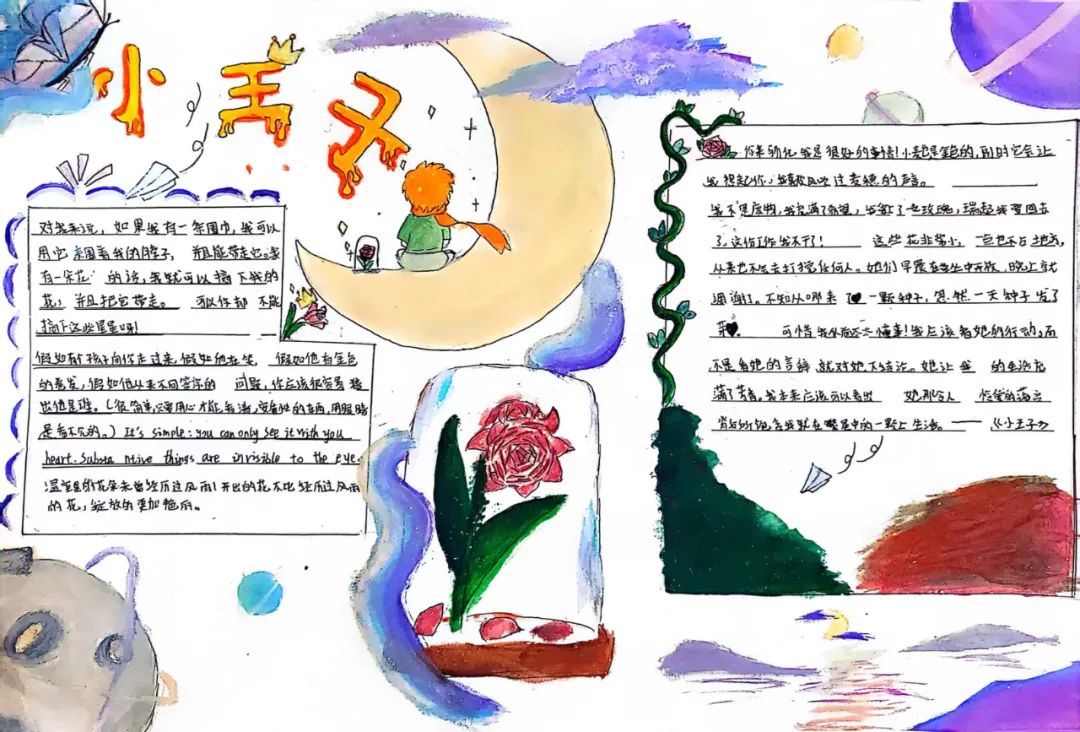 小王子
对我来说,如果我有一条围巾,我可以
用它来围着我的脖子,并且能带走它。我
有一朵花的话,我就可以摘下我的
花,并且把它带走。可以你却不能
摘下这些星星呀!
假如有个孩子向你走过来假如他在笑 假如他有金色
的头发,假如他从来不回答你的 问题,你应该很容易猜
出他是谁。(很简单,只要用心才能看清,实质性的东西,用眼睛
是看不见的。)It's simple: you can only see it with you
heart. Substa ntive things are invisible to the eye.
温室里的花朵未曾经历过风雨!开出的花不比经历过风雨
的花,绽放的更加艳丽。
你来驯化我是很好的事情!小麦也是金色的,到时它会让
我想起你,我喜欢风吹过麦穗的声音。
我不是废物,我充满了希望,
了,这份工作我不干了! 这些花非常小,一点也不占地方,
从来也不会去打扰任何人。她们早晨在草丛中开放,晚上就
凋谢了。不知从哪来了一颗种子,忽然一天种子发了
芽 可惜我当后悔懂事!我应该看她的行动,而
不是看她的言辞 就对她下结论。她让 的生活充
满了芳香,我 应该可以看出 她那令人
在繁星中的一颗上生活。——《小王子》